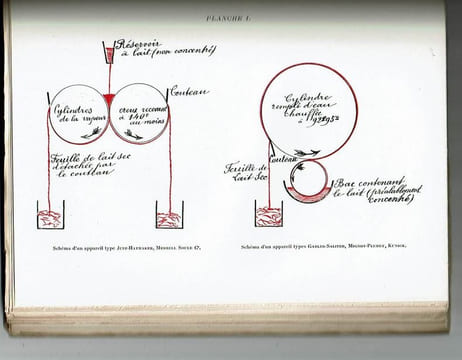 PLANCHE I.
Réservoir
à lait (non concentré)
Couteau
Cylindres
de la vapeur
creux recevant
à 140°
au moins
Feuille de lait sec
détachée par
le couteau
Cylindre
rempli d'eau
Chauffée
à
Couteau
Feuille de
lait sec
Bac contenant
le lait (préalablement
concentré)
Schéma d'un appareil type JUST-HATMAKER, MERRELL SOULE Cº.
Schéma d'un appareil types GABLER-SALITER, MIGNOT-PLUMEY, KUNICK.